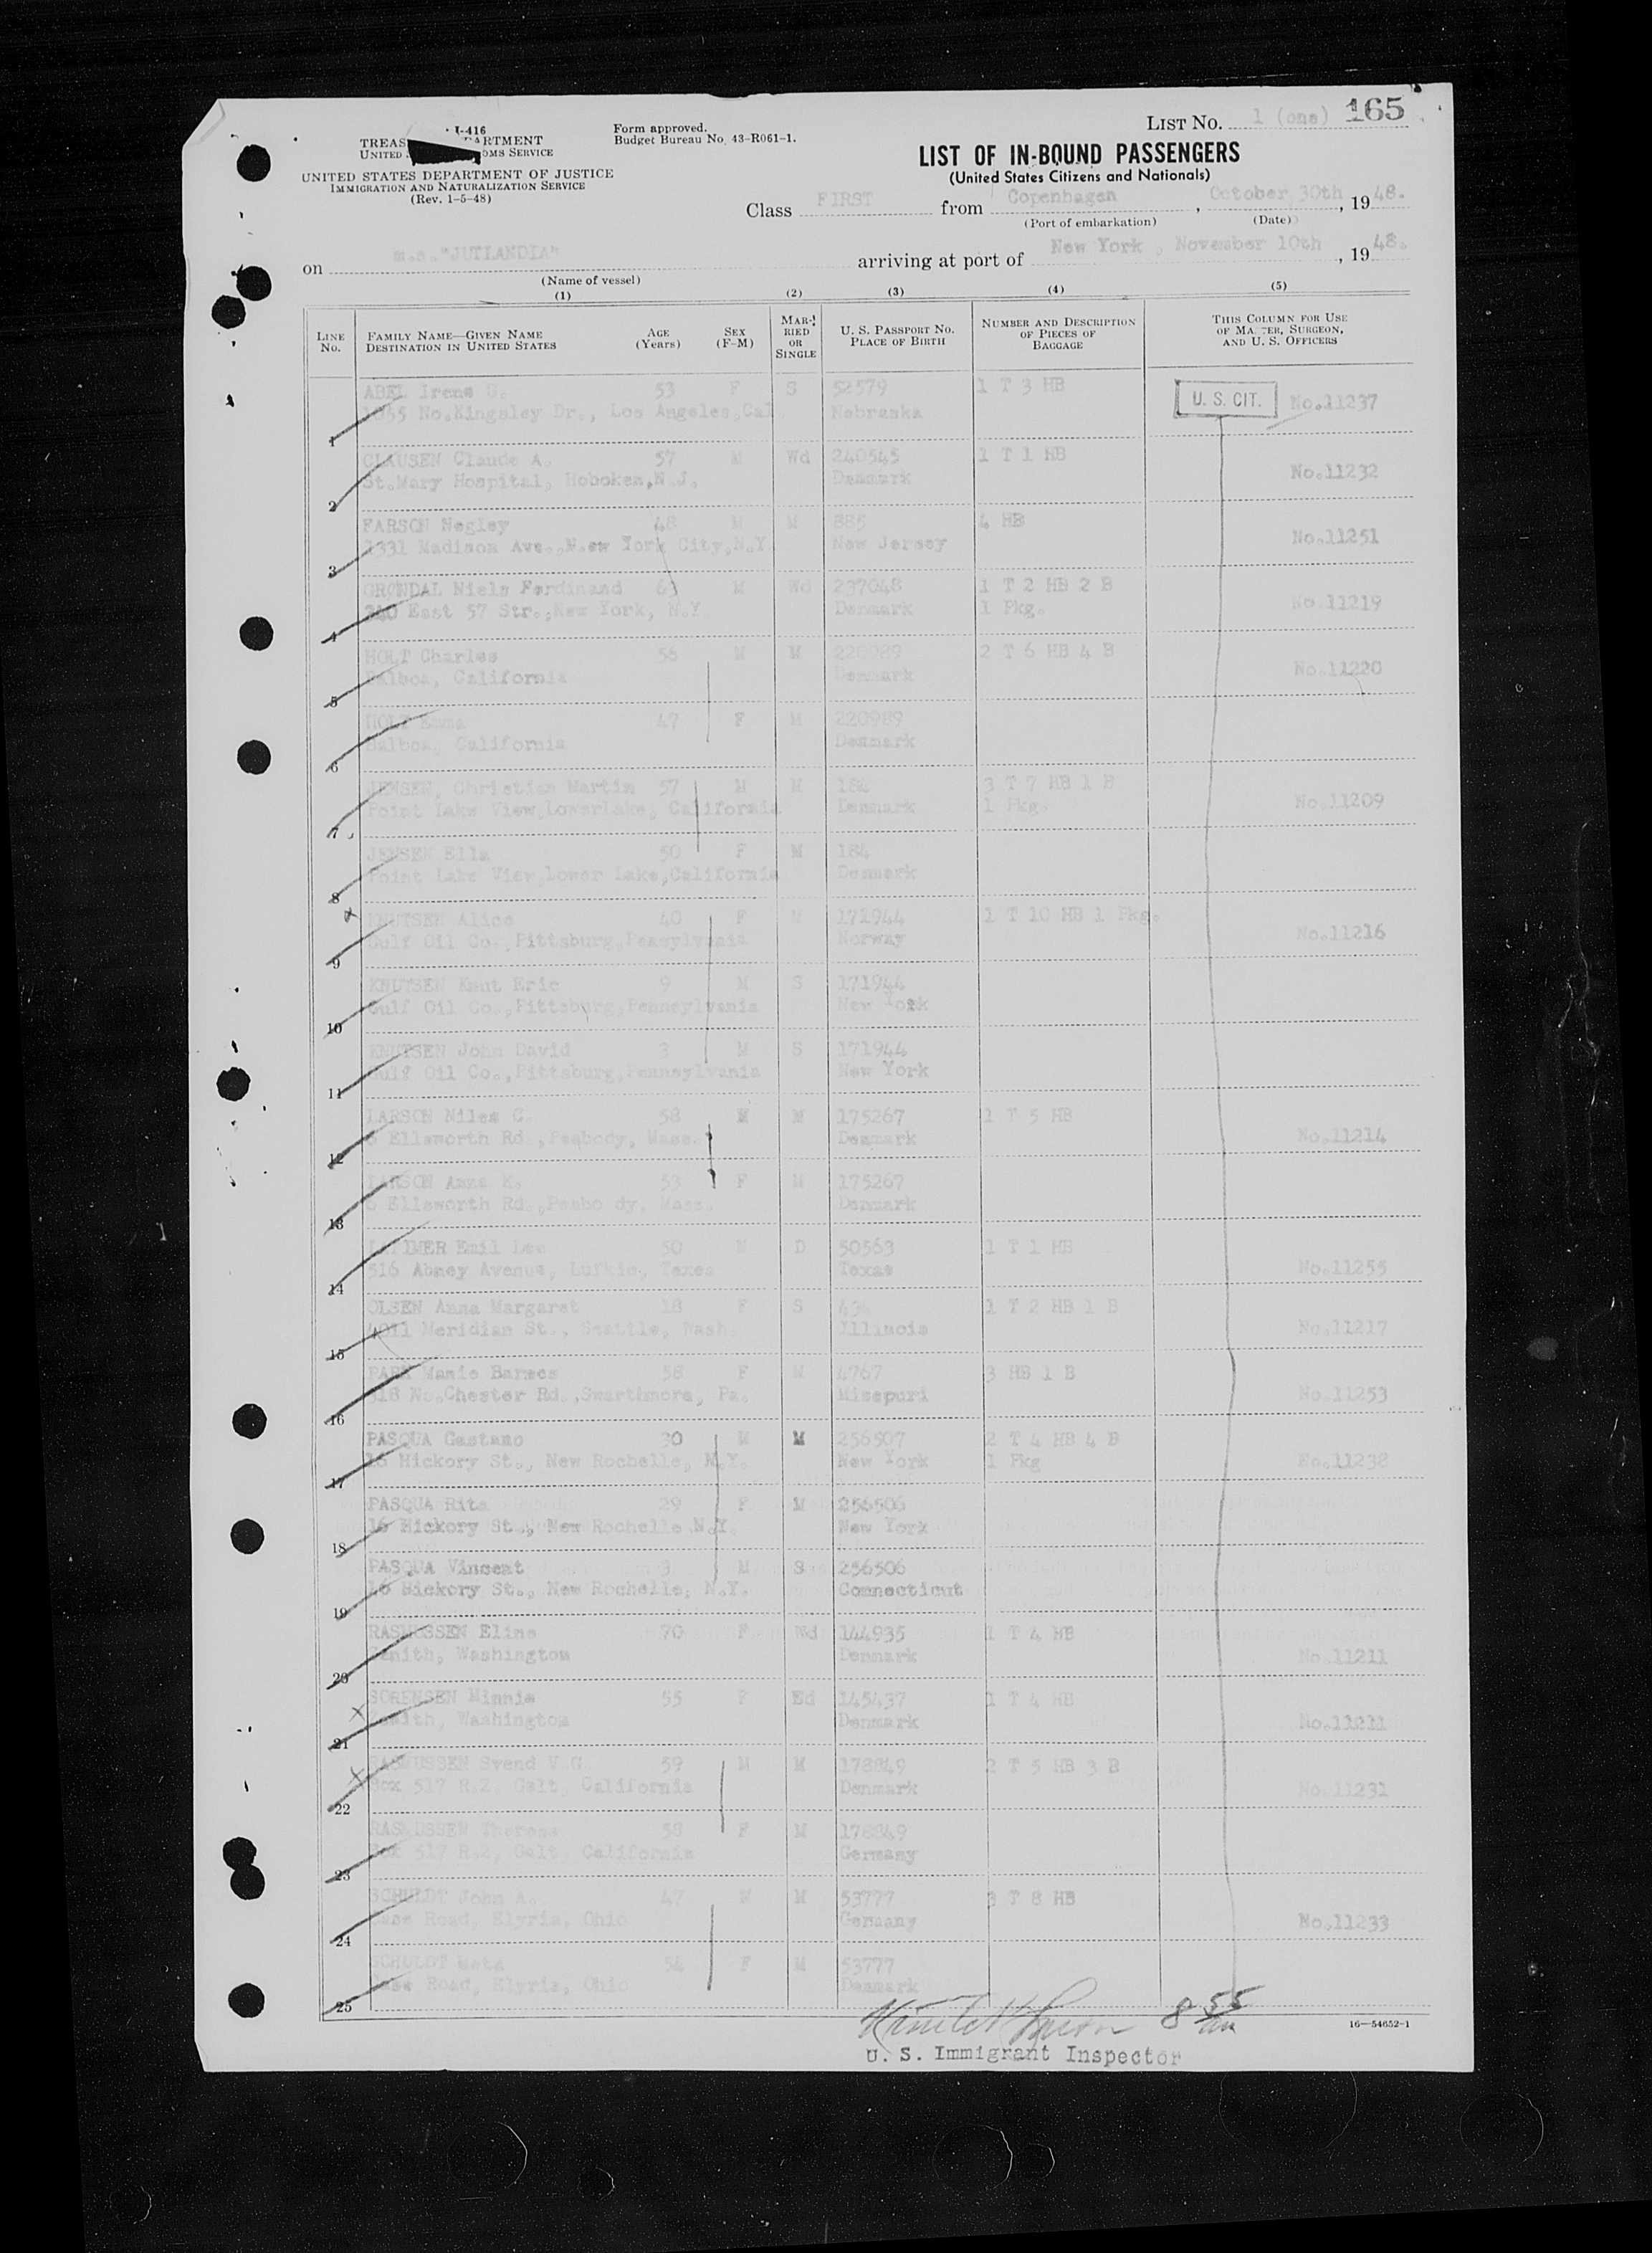 I-416
TREAS ARTMENT
UNITED OMS SERVICE
UNITED STATES DEPARTMENT OF JUSTICE
IMMIGRATION AND NATURALIZATION SERVICE
(Rev. 1-5-48)
Form approved.
Budget Bureau No. 43-R061-1.
LIST NO. 1 (one) 165
LIST OF IN-BOUND PASSENGERS
(United States Citizens and Nationals)
Class FIRST from Copenhagen, October 30th, 1948.
(Port of embarkation) (Date)
on m.s."JUTLANDIA" arriving at port of New York, November 10th, 1948.
(Name of vessel)
(1) (2) (3) (4) (5)
LINE No. FAMILY NAME—GIVEN NAME DESTINATION IN UNITED STATES AGE (Years) SEX (F-M) MARRIED OR SINGLE U. S. PASSPORT NO. PLACE OF BIRTH NUMBER AND DESCRIPTION OF PIECES OF BAGGAGE THIS COLUMN FOR USE OF MASTER, SURGEON, AND U. S. OFFICERS
ABEL Irene 53 F S 52579 1 T 3 HB U. S. CIT. No.11237
1 No.Kingsley Dr., Los Angeles,Cal Nebraska
CLAUSEN Claude A. 57 M Wd 240545 1 T 1 HB No.11232
2 St.Mary Hospital, Hoboken,N.J. Denmark
FARSON Negley 48 M M 885 4 HB No.11251
3 1331 Madison Ave.,New York City,N.Y. New Jersey
GRONDAL Niels Ferdinand 63 M Wd 237048 1 T 2 HB 2 B No.11219
4 340 East 57 Str.,New York, N.Y Denmark 1 Pkg.
HOLT Charles M M 220989 2 T 6 HB 4 B No.11220
5 Balboa, California Denmark
HOLT Emma 47 F M 220989
6 Balboa, California Denmark
JENSEN, Christian Martin 57 M M 184 3 T 7 HB 1 B No.11209
7 Point Lake View,Lowerlake, California Denmark 1 Pkg.
JENSEN Ella 50 F M 184
8 Point Lake View,Lower Lake,California Denmark
x KNUTSEN Alice 40 F M 171944 1 T 10 HB 1 Pkg. No.11216
9 Gulf Oil Co.,Pittsburg,Pennsylvania Norway
KNUTSEN Knut Eric 9 M S 171944
10 Gulf Oil Co.,Pittsburg,Pennsylvania New York
KNUTSEN John David 3 M S 171944
11 Gulf Oil Co.,Pittsburg,Pennsylvania New York
LARSON Niles C. 58 M M 175267 1 T 5 HB No.11214
12 6 Ellsworth Rd.,Peabody, Mass. Denmark
LARSON Anna K. 53 F M 175267
13 6 Ellsworth Rd.,Peabo dy, Mass. Denmark
Emil Lee 50 M D 50563 1 T 1 HB No.11255
14 516 Abney Avenue, Lufkin, Texas Texas
OLSEN Anna Margaret 18 F S 434 1 T 2 HB 1 B No.11217
15 4011 Meridian St., Seattle, Wash. Illinois
PARK Mamie Barnes 58 F M 4767 3 HB 1 B No.11253
16 318 No.Chester Rd.,Swarthmore, Pa. Missouri
PASQUA Gaetano 30 M M 256507 2 T 4 HB 4 B No.11238
17 16 Hickory St., New Rochelle, N.Y. New York 1 Pkg
PASQUA Rita 29 F M 256506
18 16 Hickory St., New Rochelle N.Y. New York
PASQUA Vincent 3 M S 256506
19 16 Hickory St., New Rochelle, N.Y. Connecticut
RASMUSSEN Eline 70 F Wd 144935 1 T 4 HB No.11211
20 Zenith, Washington Denmark
SORENSEN Minnie 55 F Ed 145437 1 T 4 HB No.11211
x 21 Zenith, Washington Denmark
x RASMUSSEN Svend V.G. 59 M M 178849 2 T 5 HB 3 B No.11231
22 Box 517 R.2, Galt, California Denmark
RASMUSSEN Theresa 58 F M 178849
23 Box 517 R.2, Galt, California Germany
SCHULDT John A. 47 M M 53777 3 T 8 HB No.11233
24 Road, Elyria, Ohio Germany
SCHULDT Meta 54 F M 53777
25 Road, Elyria, Ohio Denmark
8 55 am
U. S. Immigrant Inspector
16—54652-1